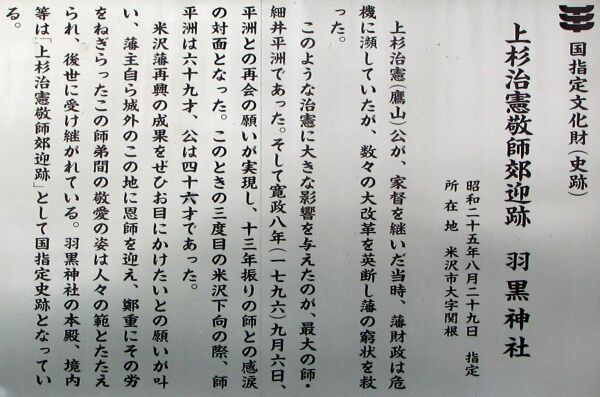 国指定文化財(史跡)
上杉治憲敬師郊迎跡 羽黒神社
昭和二十五年八月二十九日 指定
所在地 米沢市大字関根
上杉治憲(鷹山)公が、家督を継いだ当時、藩財政は危
機に瀕していたが、数々の大改革を英断し藩の窮状を救
った。
このような治憲に大きな影響を与えたのが、最大の師・
細井平洲であった。そして寛政八年(一七九六)九月六日、
平洲との再会の願いが実現し、十三年振りの師との感涙
の対面となった。このときの三度目の米沢下向の際、師
平洲は六十九才、公は四十六才であった。
米沢藩再興の成果をぜひお目にかけたいとの願いが叶
い、藩主自ら城外のこの地に恩師を迎え、鄭重にその労
をねぎらったこの師弟間の敬愛の姿は人々の範とたたえ
られ、後世に受け継がれている。羽黒神社の本殿、境内
等は「上杉治憲敬師郊迎跡」として国指定史跡となってい
る。